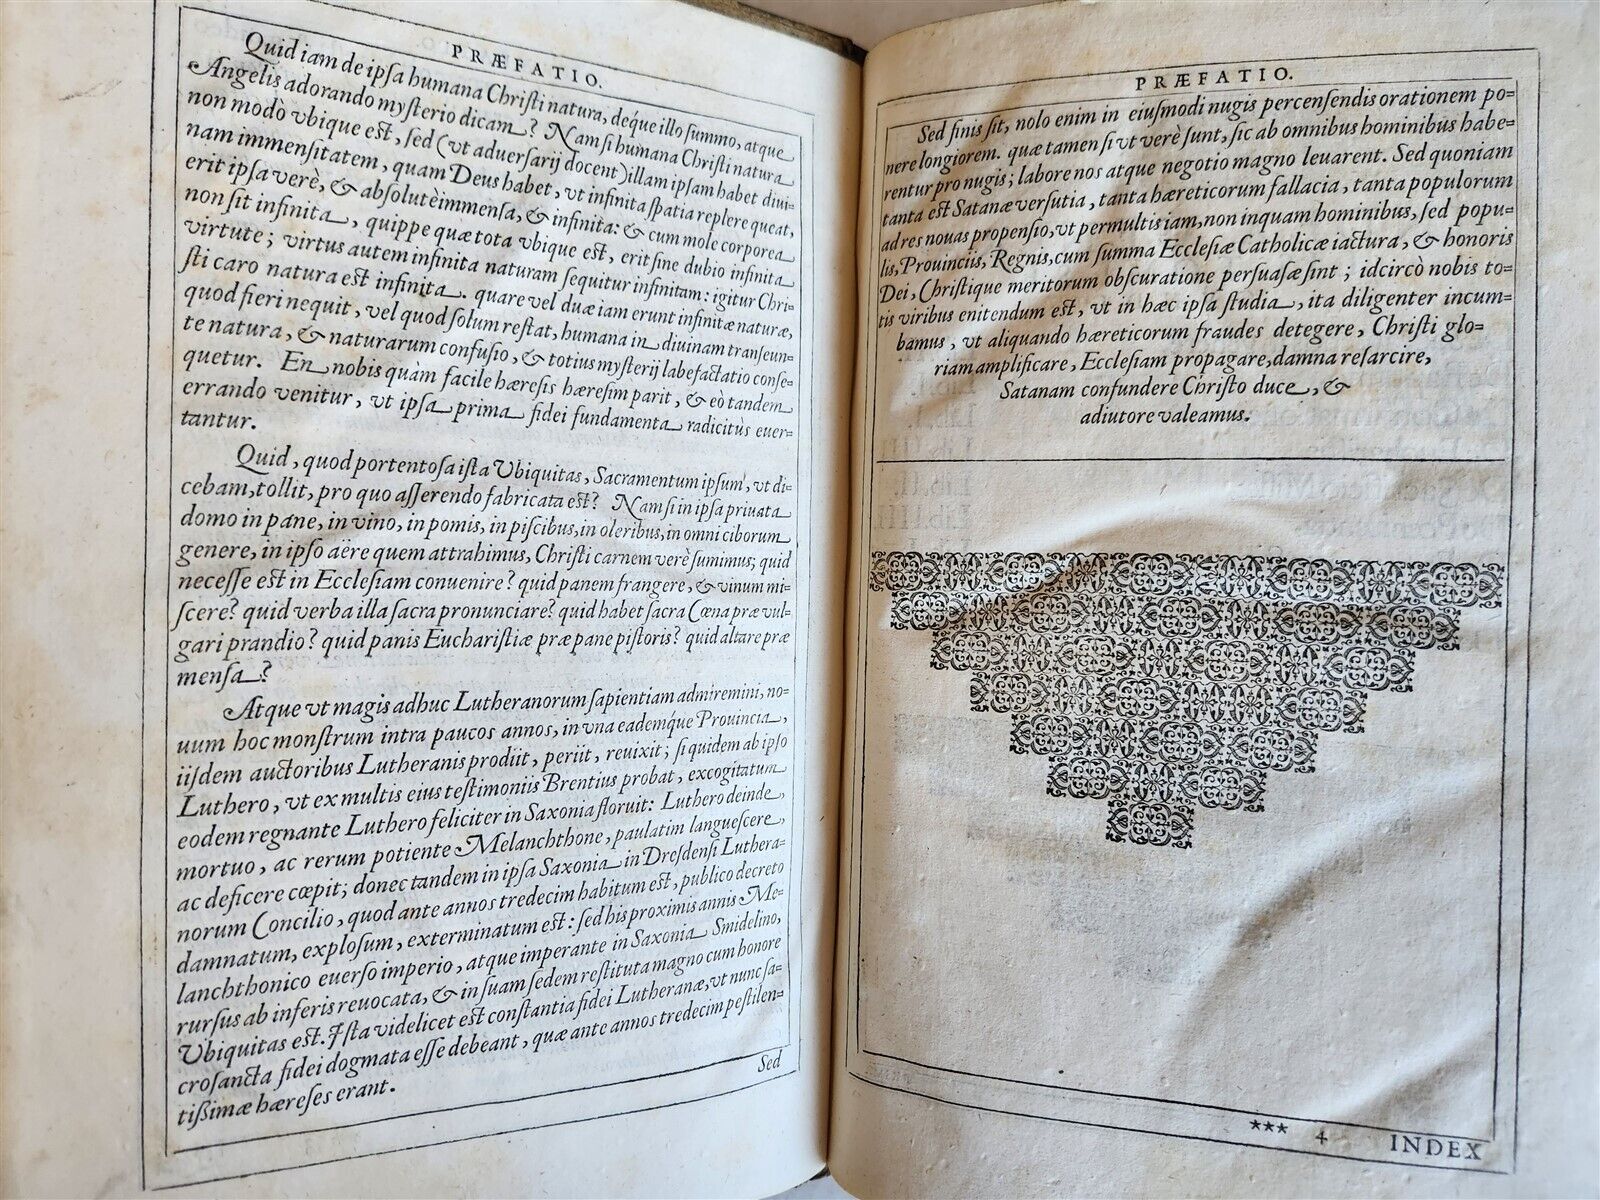 PRÆFATIO.
Quid iam de ipſa humana Chriſti natura, deq́ue illo ſummo, atque
Angelis adorando myſterio dicam? Nam ſi humana Chriſti natura
non modò vbique eſt, ſed (vt aduerſarij docent) illam ipſam habet diui-
nam immenſitatem, quam Deus habet, vt infinita ſpatia replere queat,
erit ipſa verè, & abſolutè immenſa, & infinita: & cum mole corporea
non ſit infinita, quippe quæ tota vbique eſt, erit ſine dubio infinita
virtute; virtus autem infinita naturam ſequitur infinitam: igitur Chri-
ſti caro natura eſt infinita. quare vel duæ iam erunt infinitæ naturæ,
quod fieri nequit, vel quod ſolum reſtat, humana in diuinam tranſeun-
te natura, & naturarum confuſio, & totius myſterij labefactatio conſe-
quetur. En nobis quàm facile hæreſis hæreſim parit, & eò tandem
errando venitur, vt ipſa prima fidei fundamenta radicitùs euer-
tantur.
Quid, quod portentoſa iſta Vbiquitas, Sacramentum ipſum, vt di-
cebam, tollit, pro quo aſſerendo fabricata eſt? Nam ſi in ipſa priuata
domo in pane, in vino, in pomis, in piſcibus, in oleribus, in omni ciborum
genere, in ipſo aëre quem attrahimus, Chriſti carnem verè ſumimus; quid
neceſſe eſt in Eccleſiam conuenire? quid panem frangere, & vinum mi-
ſcere? quid verba illa ſacra pronunciare? quid habet ſacra Cœna præ vul-
gari prandio? quid panis Euchariſtiæ præ pane piſtoris? quid altare præ
menſa?
Atque vt magis adhuc Lutheranorum ſapientiam admiremini, no-
uum hoc monſtrum intra paucos annos, in vna eademq́ue Prouincia,
iiſdem auctoribus Lutheranis prodiit, periit, reuixit; ſi quidem ab ipſo
Luthero, vt ex multis eius teſtimoniis Brentius probat, excogitatum
eodem regnante Luthero feliciter in Saxonia floruit: Luthero deinde
mortuo, ac rerum potiente Melanchthone, paulatim langueſcere,
ac deficere cœpit; donec tandem in ipſa Saxonia in Dreſdenſi Luthera-
norum Concilio, quod ante annos tredecim habitum eſt, publico decreto
damnatum, exploſum, exterminatum eſt: ſed his proximis annis Me-
lanchthonico euerſo imperio, atque imperante in Saxonia Smidelino,
rurſus ab inferis reuocata, & in ſuam ſedem reſtituta magno cum honore
Vbiquitas eſt. Iſta videlicet eſt conſtantia fidei Lutheranæ, vt nunc ſa-
croſancta fidei dogmata eſſe debeant, quæ ante annos tredecim peſtilen-
tißimæ hæreſes erant.
Sed
PRÆFATIO.
Sed finis ſit, nolo enim in eiuſmodi nugis percenſendis orationem po-
nere longiorem. quæ tamen ſi vt verè ſunt, ſic ab omnibus hominibus habe-
rentur pro nugis; labore nos atque negotio magno leuarent. Sed quoniam
tanta eſt Satanæ verſutia, tanta hæreticorum fallacia, tanta populorum
ad res nouas propenſio, vt permultis iam, non inquam hominibus, ſed popu-
lis, Prouinciis, Regnis, cum ſumma Eccleſiæ Catholicæ iactura, & honoris
Dei, Chriſtique meritorum obſcuratione perſuaſæ ſint; idcircò nobis to-
tis viribus enitendum eſt, vt in hæc ipſa ſtudia, ita diligenter incum-
bamus, vt aliquando hæreticorum fraudes detegere, Chriſti glo-
riam amplificare, Eccleſiam propagare, damna reſarcire,
Satanam confundere Chriſto duce, &
adiutore valeamus.
*** 4 INDEX